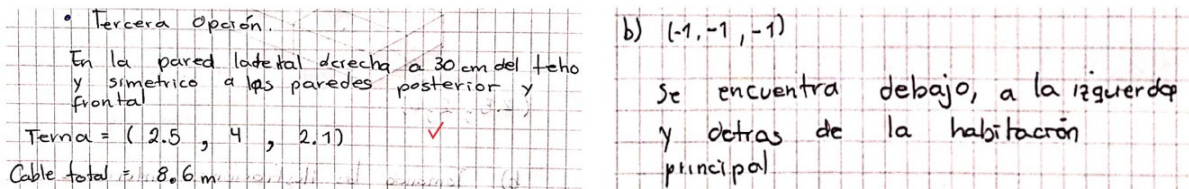 • Tercera Opción.
En la pared lateral derecha a 30 cm del teho
y simetrico a las paredes posterior y
frontal
Terna = ( 2.5 , 4 , 2.1)
Cable total = 8.6 m
b) (-1, -1, -1)
se encuentra debajo, a la izquierda
y detras de la habitación
principal